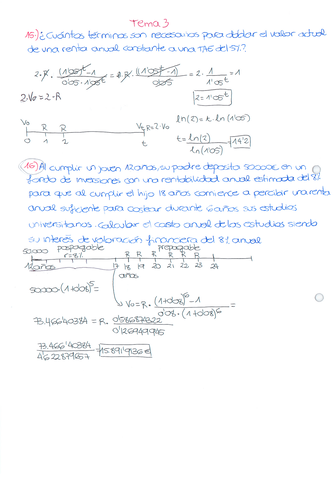 Tema 3
15.) ¿Cuántos términos son necesarios para doblar el valor actual
de una renta anual constante a una TAE del 5%?
2·R· (1'05^t - 1) / 0'05·1'05^t = 2·R· ((1'05^t - 1) / 0'05 = 2· 1 / 1'05^t = 1
2·V0 = 2·R
2 = 1'05^t
V0 R R Vt R = 2·V0
0 1 2 t
ln(2) = t·ln(1'05)
t = ln(2) / ln(1'05) = 14'2
16.) Al cumplir un joven 12 años, su padre deposita 50000€ en un
fondo de inversiones con una rentabilidad anual estimada del 8%
para que al cumplir el hijo 18 años comience a percibir una renta
anual suficiente para costear durante 6 años sus estudios
universitarios. Calcular el costo anual de los estudios siendo
su interés de valoración financiera del 8% anual
50000 pospagable prepagable
r = 8% R R R R R R
12 años 17 18 19 20 21 22 23 24
años
50000·(1+0'08)^5 =
V0 = R· (1+0'08)^6 - 1 / 0'08·(1+0'08)^6 =
73.466'40384 = R· 0'586874322 / 0'126949945
73.466'40384 / 4'622879657 = 15.891'9136€